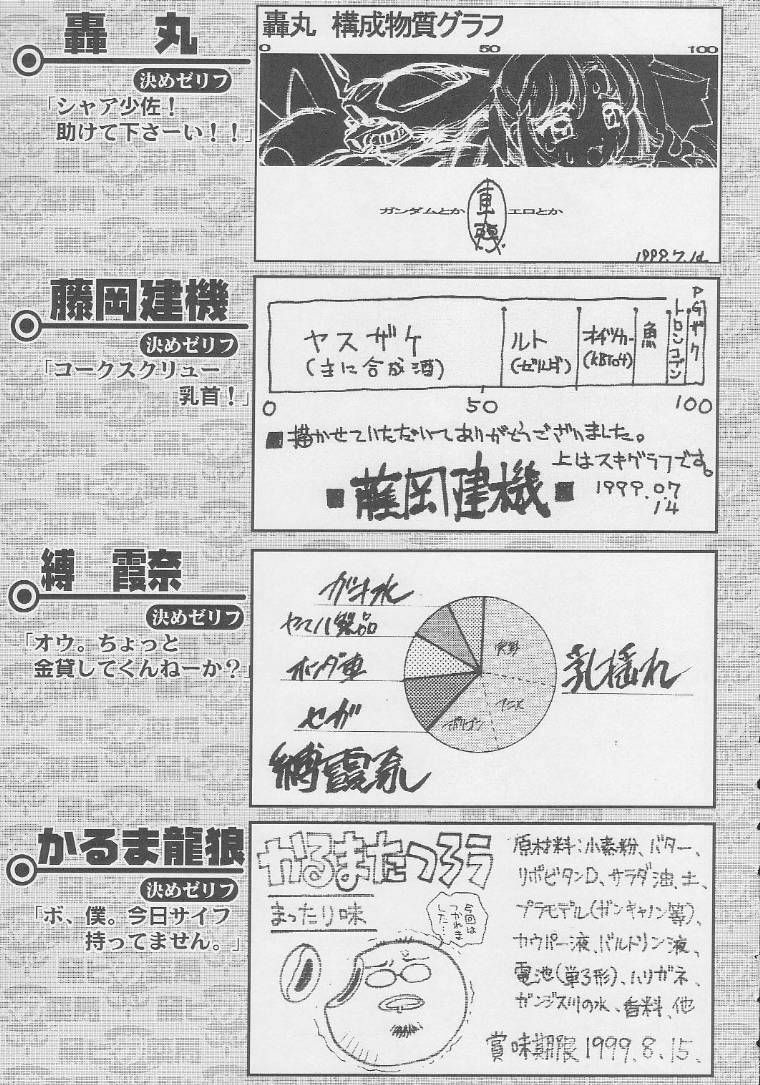 轟丸
決めゼリフ
「シャア少佐!
助けて下さーい!!」
轟丸 構成物質グラフ
0 50 100
ガンダムとか
エロとか
藤岡建機
決めゼリフ
「コークスクリュー
乳首!」
ヤスザケ
(主に合成酒)
ルト
(ゼルダ)
魚
トロンコブン
PGザク
0 50 100
■描かせていただいてありがとうございました。
上はスキグラフです。
■藤岡建機■
1999.07
14
縛霞奈
決めゼリフ
「オウ。ちょっと
金貸してくんねーか?」
ガラナ水
ヤマハ製品
ホンダ車
セガ
実写
アニメ
ポリゴン
乳揺れ
縛霞奈
かるま龍狼
決めゼリフ
「ボ、僕。今日サイフ
持ってません。」
かるまたつろう
まったり味
今回は
つかれま
した…
原材料:小麦粉、バター、
リポビタンD、サラダ油、土、
プラモデル(ガンキャノン等)、
カウパー液、バルトリン液、
電池(単3形)、ハリガネ、
ガンジス川の水、香料、他
賞味期限1999.8.15.